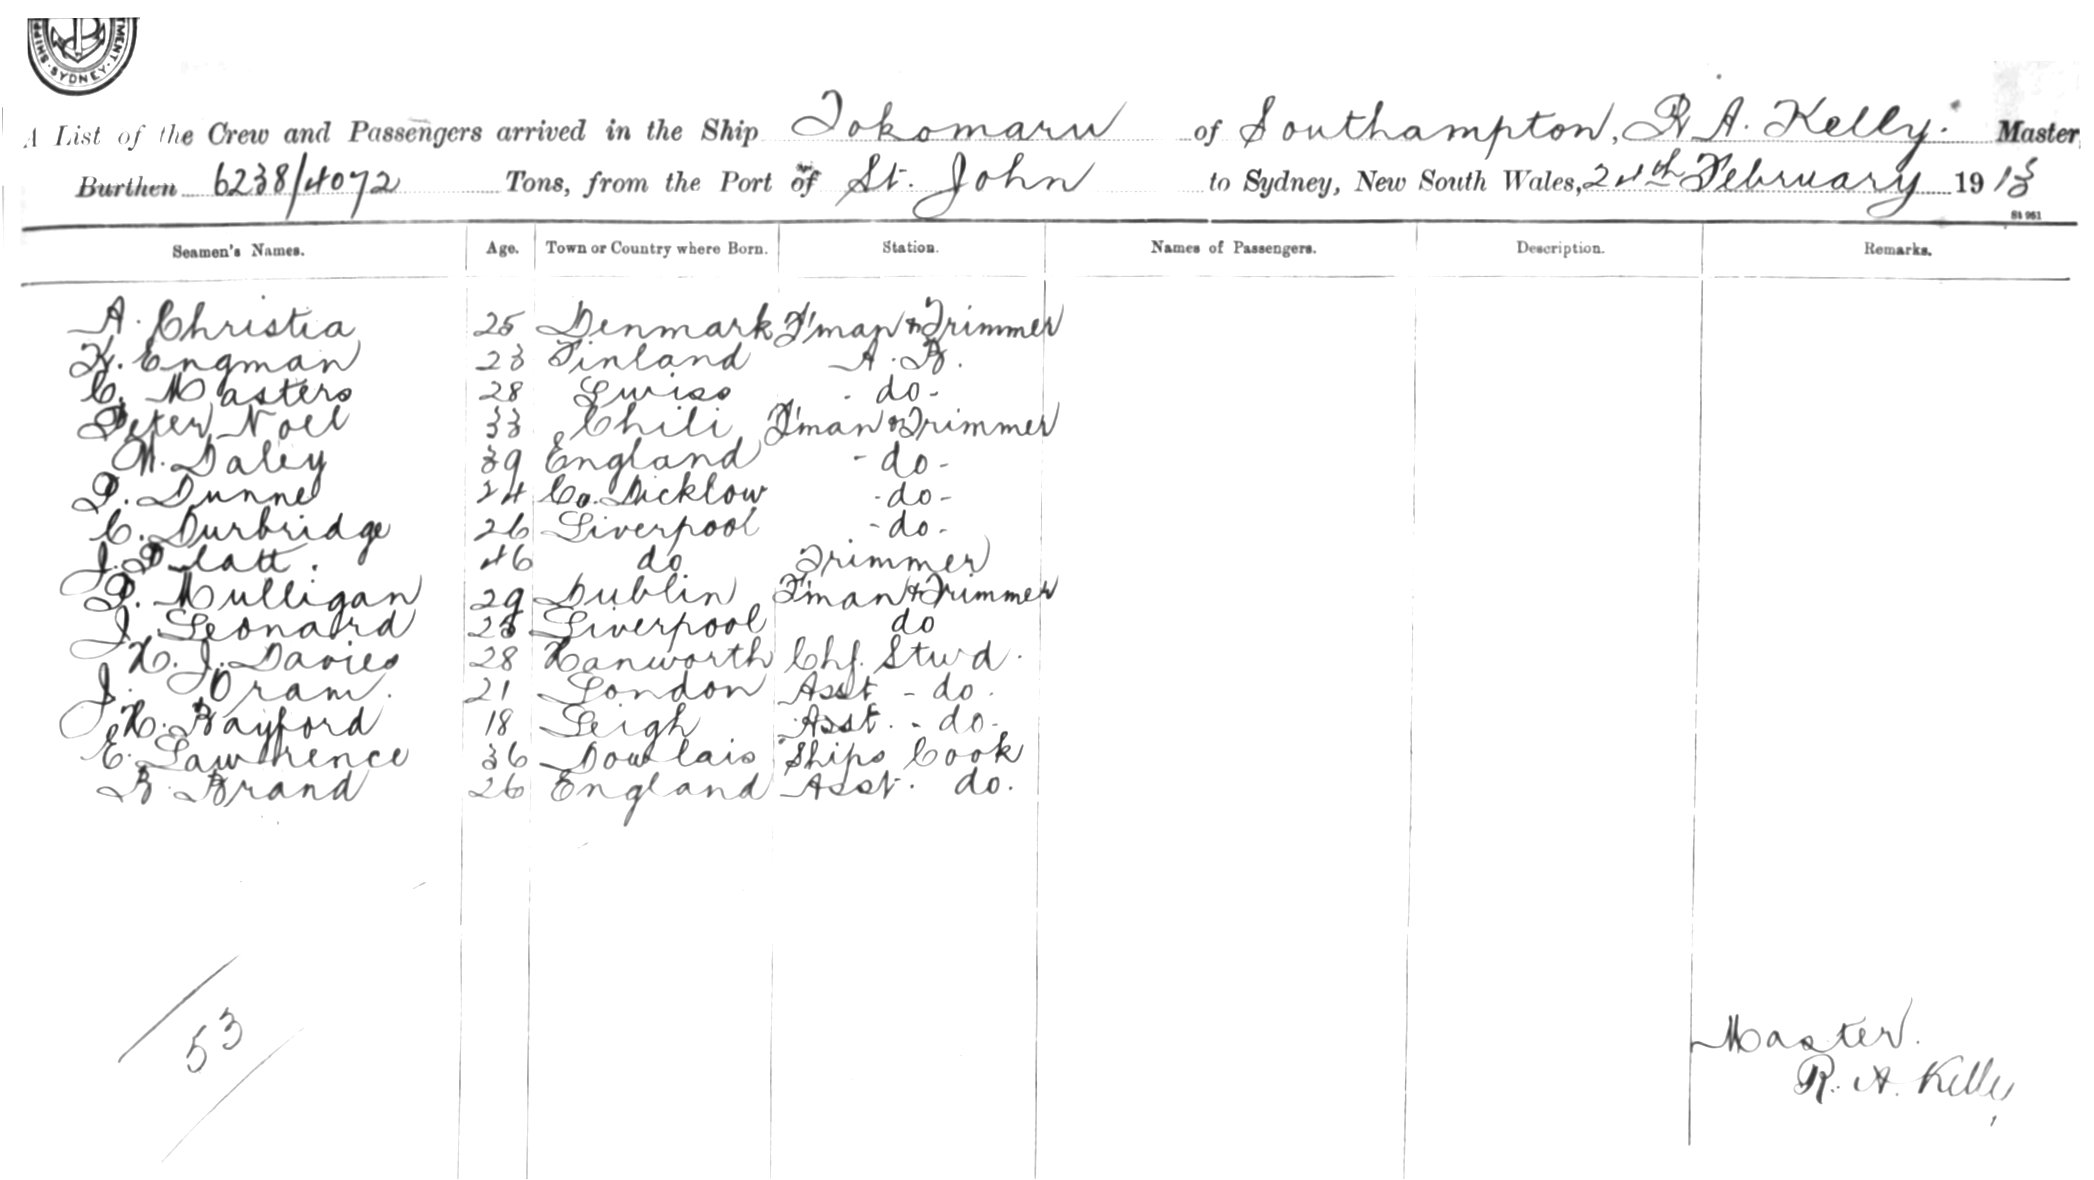 SHIPP MENT. SYDNEY.
A List of the Crew and Passengers arrived in the Ship Tokomaru of Southampton, R A. Kelly. Master,
Burthen 6238/4072 Tons, from the Port of St. John to Sydney, New South Wales, 24th February 1913
St 961
Seamen's Names. Age. Town or Country where Born. Station. Names of Passengers. Description. Remarks.
A. Christia 25 Denmark F'man & Trimmer
K. Engman 23 Finland A. B.
C. Masters 28 Swiss - do -
Peter Noel 33 Chili F'man & Trimmer
W. Daley 39 England - do -
P. Dunne 24 Co. Wicklow - do -
C. Durbridge 26 Liverpool - do -
J. Platt. 46 do Trimmer
P. Mulligan 29 Dublin F'man & Trimmer
J. Leonard Liverpool do
H. J. Davies 28 Hanworth Chf. Stw'd.
J. Oram. 21 London Asst - do.
J. H. Bayford 18 Leigh Asst. - do -
E. Lawrence 36 Dowlais Ships Cook
B. Brand 26 England Asst. do.
53
Master.
R. A. Kelly